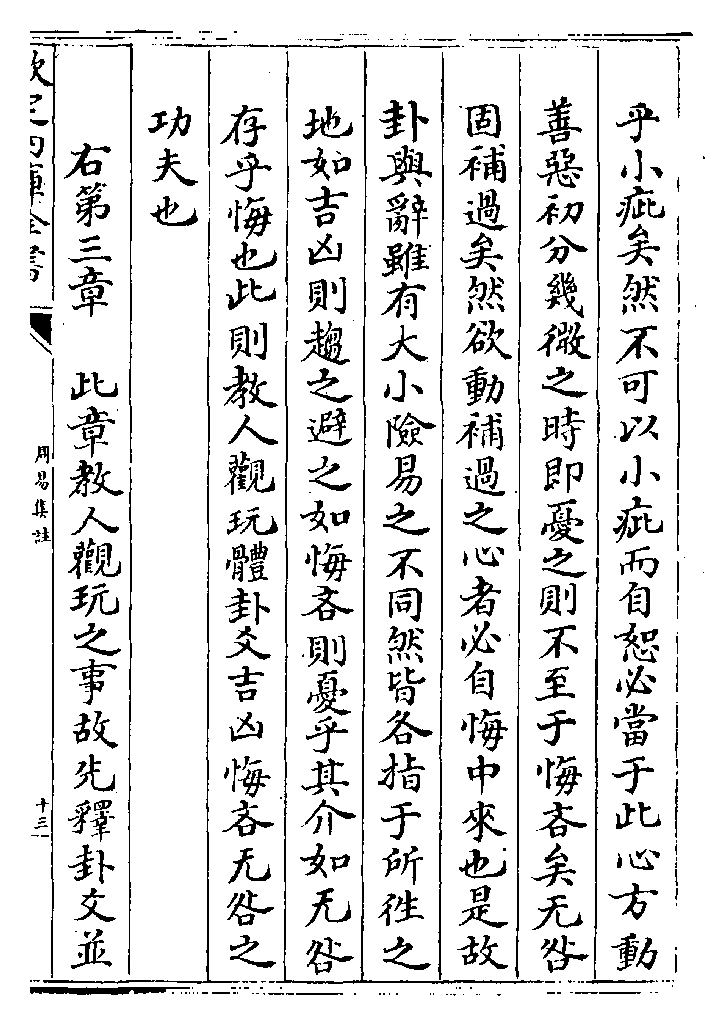 乎小疵矣然不可以小疵而自恕必當于此心方動
善惡初分幾微之時即憂之則不至于悔吝矣无咎
固補過矣然欲動補過之心者必自悔中來也是故
卦與辭雖有大小險易之不同然皆各指于所徃之
地如吉凶則趨之避之如悔吝則憂乎其介如无咎
存乎悔也此則教人觀玩體卦爻吉凶悔吝无咎之
功夫也
右第三章 此章教人觀玩之事故先釋卦文並
欽定四庫全書
周易集註
十三